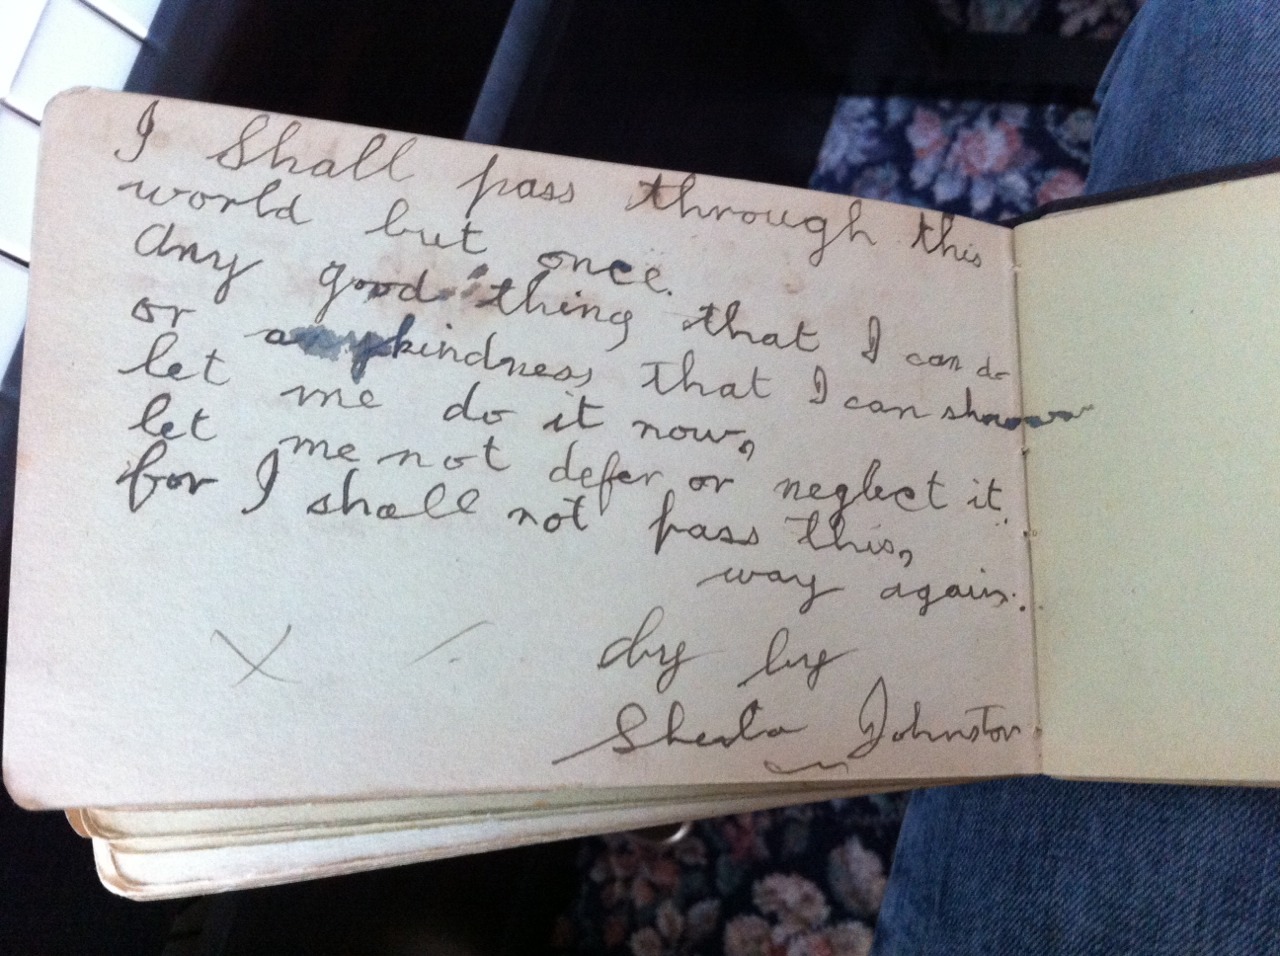 I Shall pass through this
world but once.
Any good thing that I can do
or any kindness that I can show
let me do it now,
let me not defer or neglect it.
for I shall not pass this,
way again.
by
Sheila Johnston